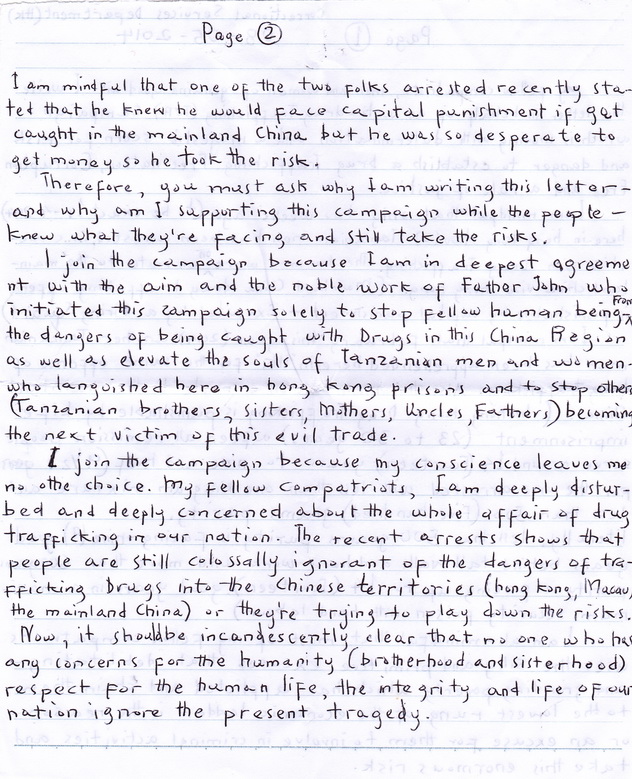 Page ②
I am mindful that one of the two folks arrested recently sta-
ted that he knew he would face capital punishment if get
caught in the mainland China but he was so desperate to
get money so he took the risk.
Therefore, you must ask why I am writing this letter-
and why am I supporting this campaign while the people –
knew what they're facing and still take the risks.
I join the campaign because I am in deepest agreeme
nt with the aim and the noble work of Father John who
initiated this campaign solely to stop fellow human being From
the dangers of being caught with Drugs in this China Region
as well as elevate the souls of Tanzanian men and women-
who languished here in-hong kong prisons and to stop others
(Tanzanian brothers, sisters, Mothers, Uncles, Fathers) becoming
the next victim of this evil trade.
I join the campaign because my conscience leaves me
no othe choice. My fellow compatriots, I am deeply distur-
bed and deeply concerned about the whole affair of drug
trafficking in our nation. The recent arrests shows that
people are still colossally ignorant of the dangers of tra-
fficking Drugs into the Chinese territories (hong kong, Macau,
the mainland China) or they're trying to play down the risks.
Now, it should be incandescently clear that no one who has
any concerns for the humanity (brotherhood and sisterhood)
respect for the human life, the integrity and life of our
nation ignore the present tragedy.